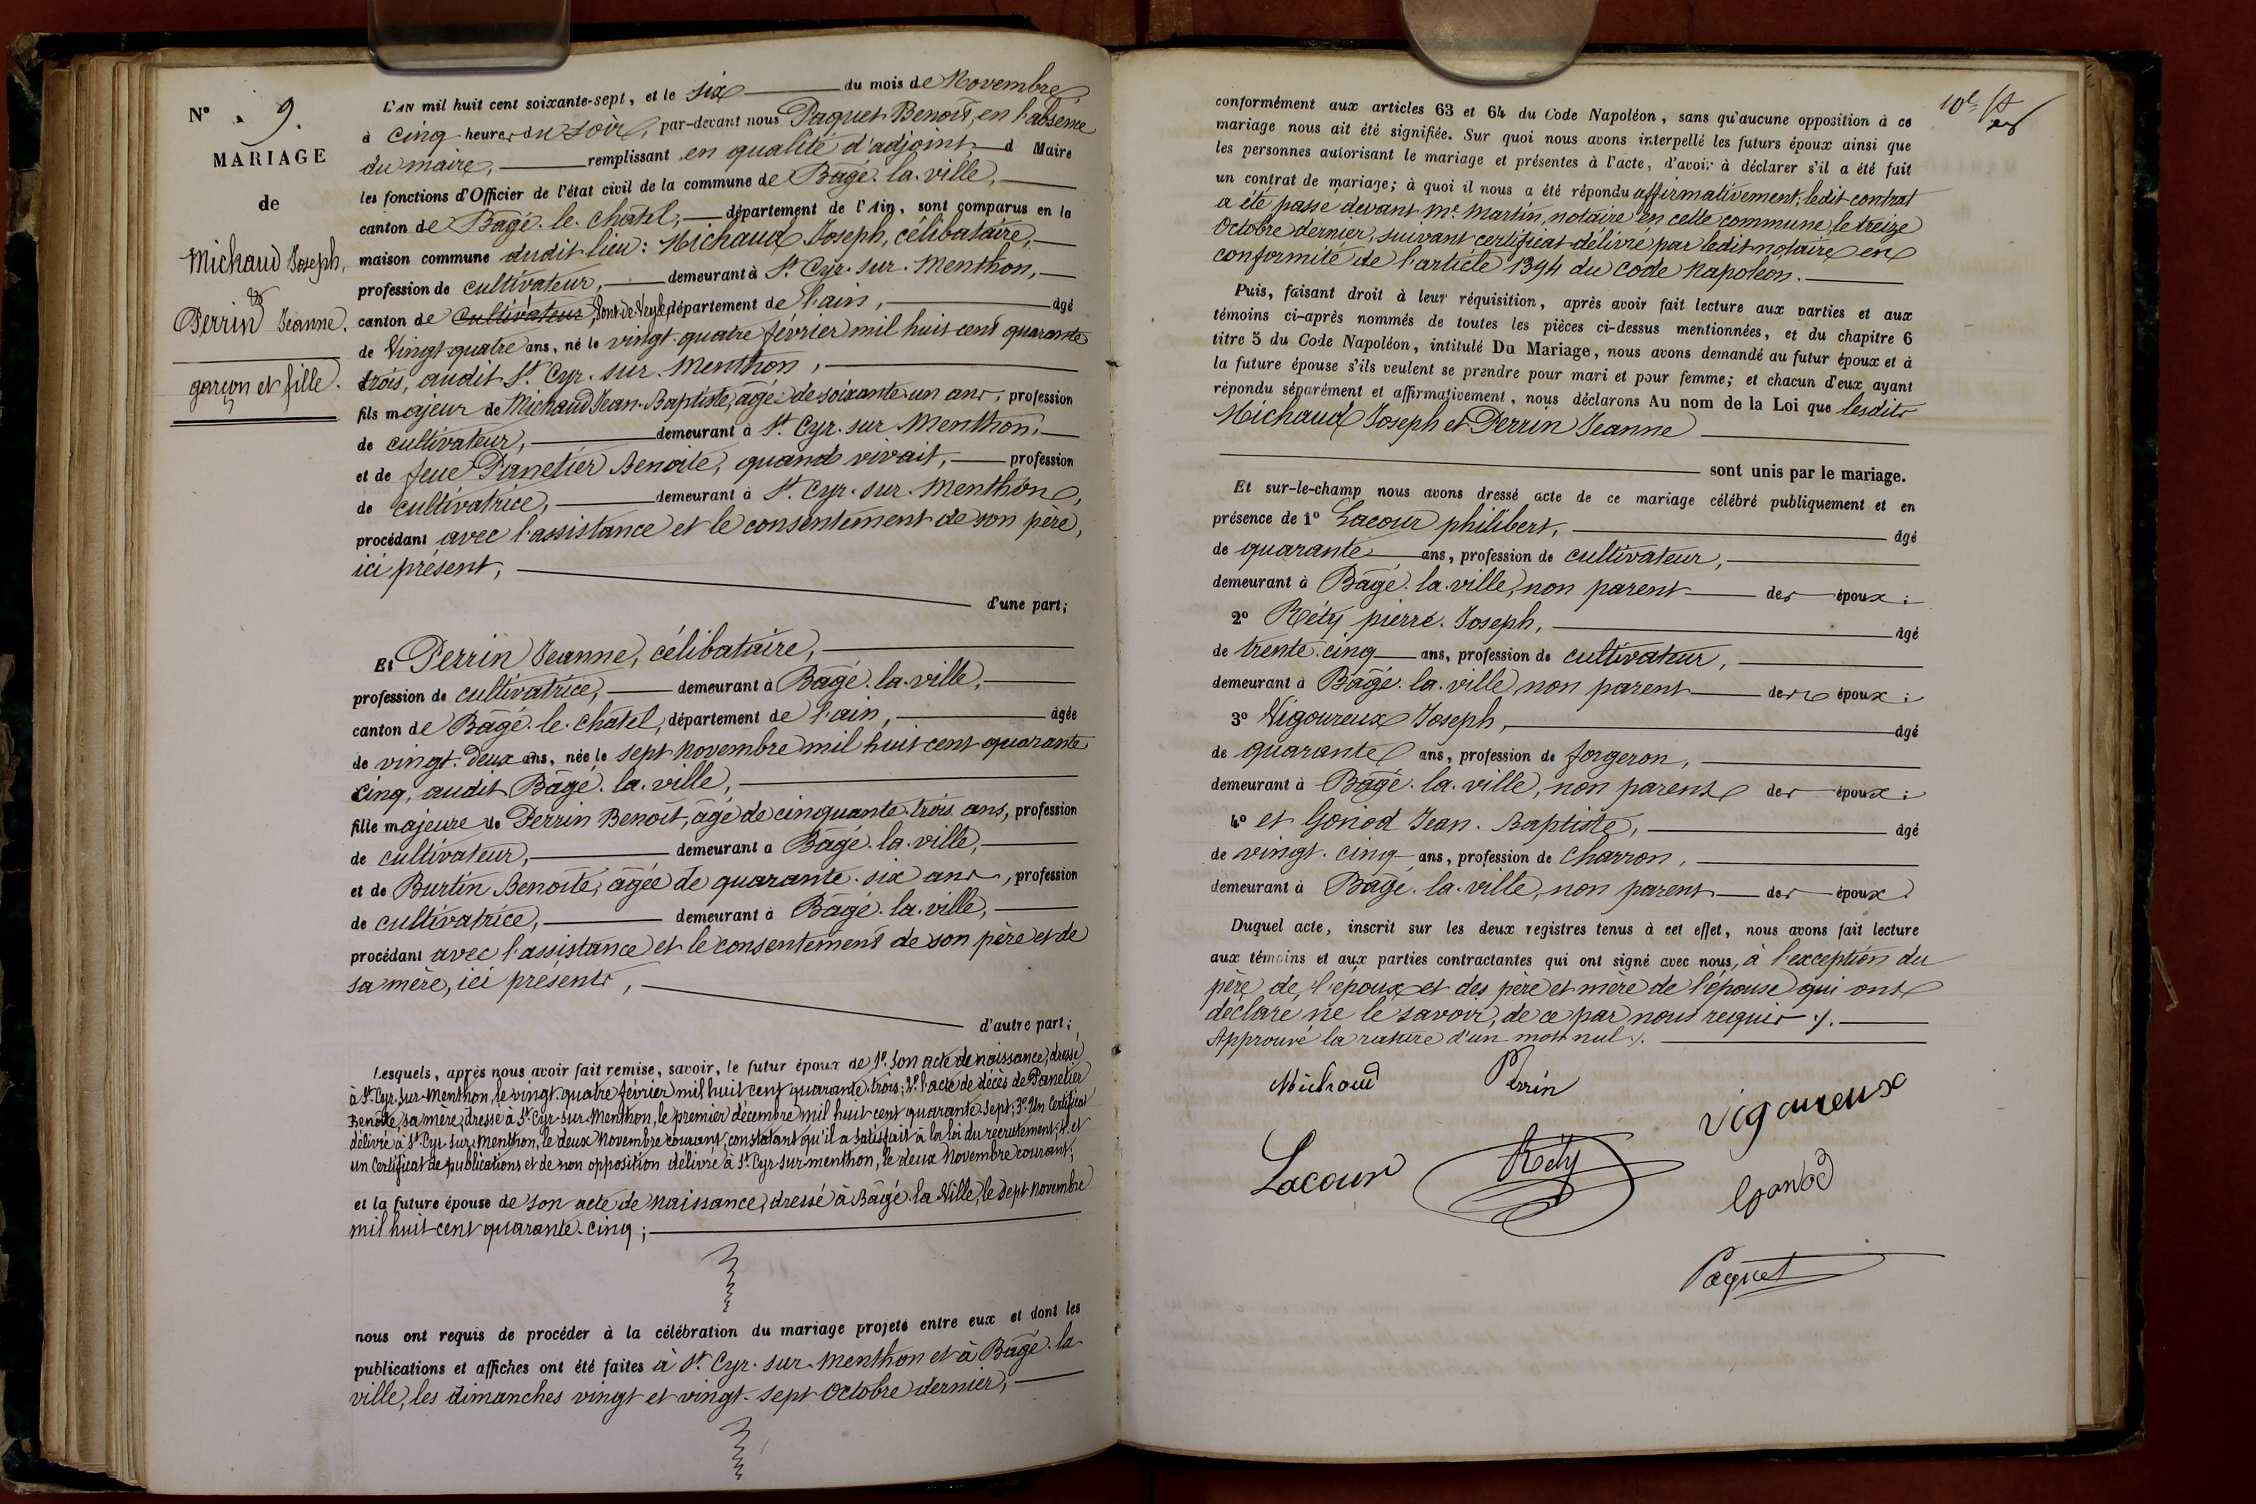 N° 9.
MARIAGE
de
Michaud Joseph,
&
Perrin Jeanne.
garçon et fille.
L'AN mil huit cent soixante-sept, et le six du mois de Novembre,
à cinq heures du soir, par-devant nous Paquet Benoît, en l'absence
du maire, remplissant en qualité d'adjoint, d Maire
les fonctions d'Officier de l'état civil de la commune de Bâgé-la-ville,
canton de Bâgé-le-châtel, département de l'Ain, sont comparus en la
maison commune dudit lieu: Michaud Joseph, célibataire,
profession de cultivateur, demeurant à St. Cyr-sur-Menthon,
canton de cultivateur, Pont-de-Veyle, département de l'ain, âgé
de Vingt-quatre ans, né le vingt-quatre février mil huit cent quarante
trois, audit St. Cyr-sur-Menthon,
fils majeur de Michaud Jean-Baptiste, âgé de soixante-un ans, profession
de cultivateur, demeurant à St. Cyr-sur-Menthon,
et de feue Panetier Benoite, quand vivait, profession
de cultivatrice, demeurant à St. Cyr-sur-Menthon,
procédant avec l'assistance et le consentement de son père,
ici présent,
d'une part;
Et Perrin Jeanne, célibataire,
profession de cultivatrice, demeurant à Bâgé-la-ville,
canton de Bâgé-le-châtel, département de l'ain, âgée
de vingt-deux ans, née le sept novembre mil huit cent quarante
cinq, audit Bâgé-la-ville,
fille majeure de Perrin Benoît, âgé de cinquante-trois ans, profession
de cultivateur, demeurant à Bâgé-la-ville,
et de Burtin Benoite, âgée de quarante-six ans, profession
de cultivatrice, demeurant à Bâgé-la-ville,
procédant avec l'assistance et le consentement de son père et de
sa mère, ici présents,
d'autre part;
Lesquels, après nous avoir fait remise, savoir, le futur époux de 1° son acte de naissance, dressé
à St. Cyr-sur-Menthon, le vingt-quatre février mil huit cent quarante-trois; 2° l'acte de décès de Panetier
Benoite, sa mère, dressé à St-Cyr-sur-Menthon, le premier décembre mil huit cent quarante-sept; 3° Un Certificat
délivré à St Cyr-sur-Menthon, le deux Novembre courant, constatant qu'il a satisfait à la loi du recrutement; 4° et
un Certificat de publications et de non opposition délivré à St Cyr-sur-menthon, le deux Novembre courant;
et la future épouse de son acte de naissance, dressé à Bâgé-la-Ville, le sept Novembre
mil huit cent quarante-cinq;
nous ont requis de procéder à la célébration du mariage projeté entre eux et dont les
publications et affiches ont été faites à St. Cyr-sur-Menthon et à Bâgé-la-
ville, les dimanches vingt et vingt-sept Octobre dernier,
conformément aux articles 63 et 64 du Code Napoléon, sans qu'aucune opposition à ce
mariage nous ait été signifiée. Sur quoi nous avons interpellé les futurs époux ainsi que
les personnes autorisant le mariage et présentes à l'acte, d'avoir à déclarer s'il a été fait
un contrat de mariage; à quoi il nous a été répondu affirmativement; ledit contrat
a été passé devant Me. Martin, notaire en cette commune, le treize
Octobre dernier, suivant certificat délivré par ledit notaire en
conformité de l'article 1394 du Code Napoléon.
Puis, faisant droit à leur réquisition, après avoir fait lecture aux parties et aux
témoins ci-après nommés de toutes les pièces ci-dessus mentionnées, et du chapitre 6
titre 5 du Code Napoléon, intitulé Du Mariage, nous avons demandé au futur époux et à
la future épouse s'ils veulent se prendre pour mari et pour femme; et chacun d'eux ayant
répondu séparément et affirmativement, nous déclarons Au nom de la Loi que lesdits
Michaud Joseph et Perrin Jeanne
sont unis par le mariage.
Et sur-le-champ nous avons dressé acte de ce mariage célébré publiquement et en
présence de 1° Lacour philibert, âgé
de quarante ans, profession de cultivateur,
demeurant à Bâgé-la-ville, non parent des époux;
2° Réty pierre-Joseph, âgé
de trente-cinq ans, profession de cultivateur,
demeurant à Bâgé-la-ville non parent des époux;
3° Vigoureux Joseph, âgé
de quarante ans, profession de forgeron,
demeurant à Bâgé-la-ville, non parent des époux;
4° et Gonod Jean-Baptiste, âgé
de vingt-cinq ans, profession de charron,
demeurant à Bâgé-la-ville, non parent des époux.
Duquel acte, inscrit sur les deux registres tenus à cet effet, nous avons fait lecture
aux témoins et aux parties contractantes qui ont signé avec nous, à l'exception du
père de l'époux et des père et mère de l'épouse qui ont
déclaré ne le savoir, de ce par nous requis ./.
Approuvé la rature d'un mot nul ./.
Michaud Perrin
Vigoureux
Lacour Réty
Gonod
Paquet